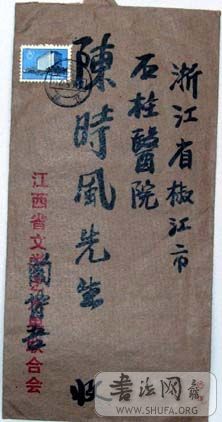 浙江省椒江市
石柱醫院
陳時風先生
收
江西省文学艺术界联合会
书法网
WWW.SHUFA.ORG